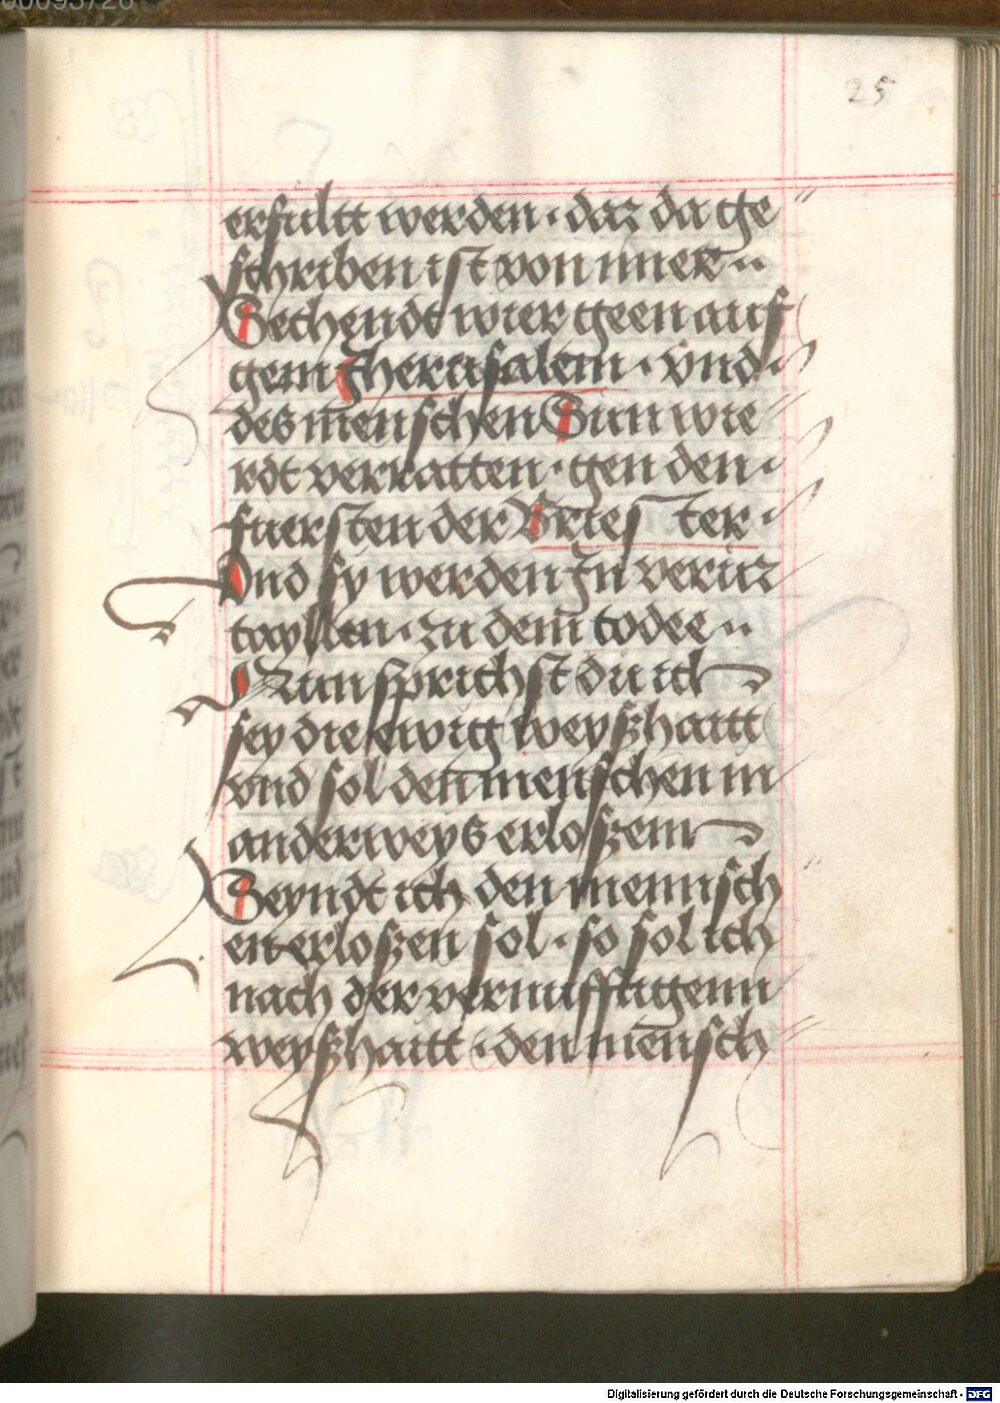 00095728
25
erfultt werden · daz da ge〃
schriben ist von mier ··
Sechendt wier geen auf
gem Jherusalem · vnd ·
des menschen Sun wie〃
rdt verratten · gen den ·
fuersten der Bries ter ·
Vnd sy werden Jn verur
tayllen · zu dem̄ todee ··
Nun sprichst du ich
sey die ewig weyszhaitt
vnd sol den̄ menschen in
anderweys erloszenn
Seyndt ich den mennsch
en erloszen sol · so sol ich
nach der vernufftigenn
weyszhaitt · den mēnsch〃
Digitalisierung gefördert durch die Deutsche Forschungsgemeinschaft - DFG